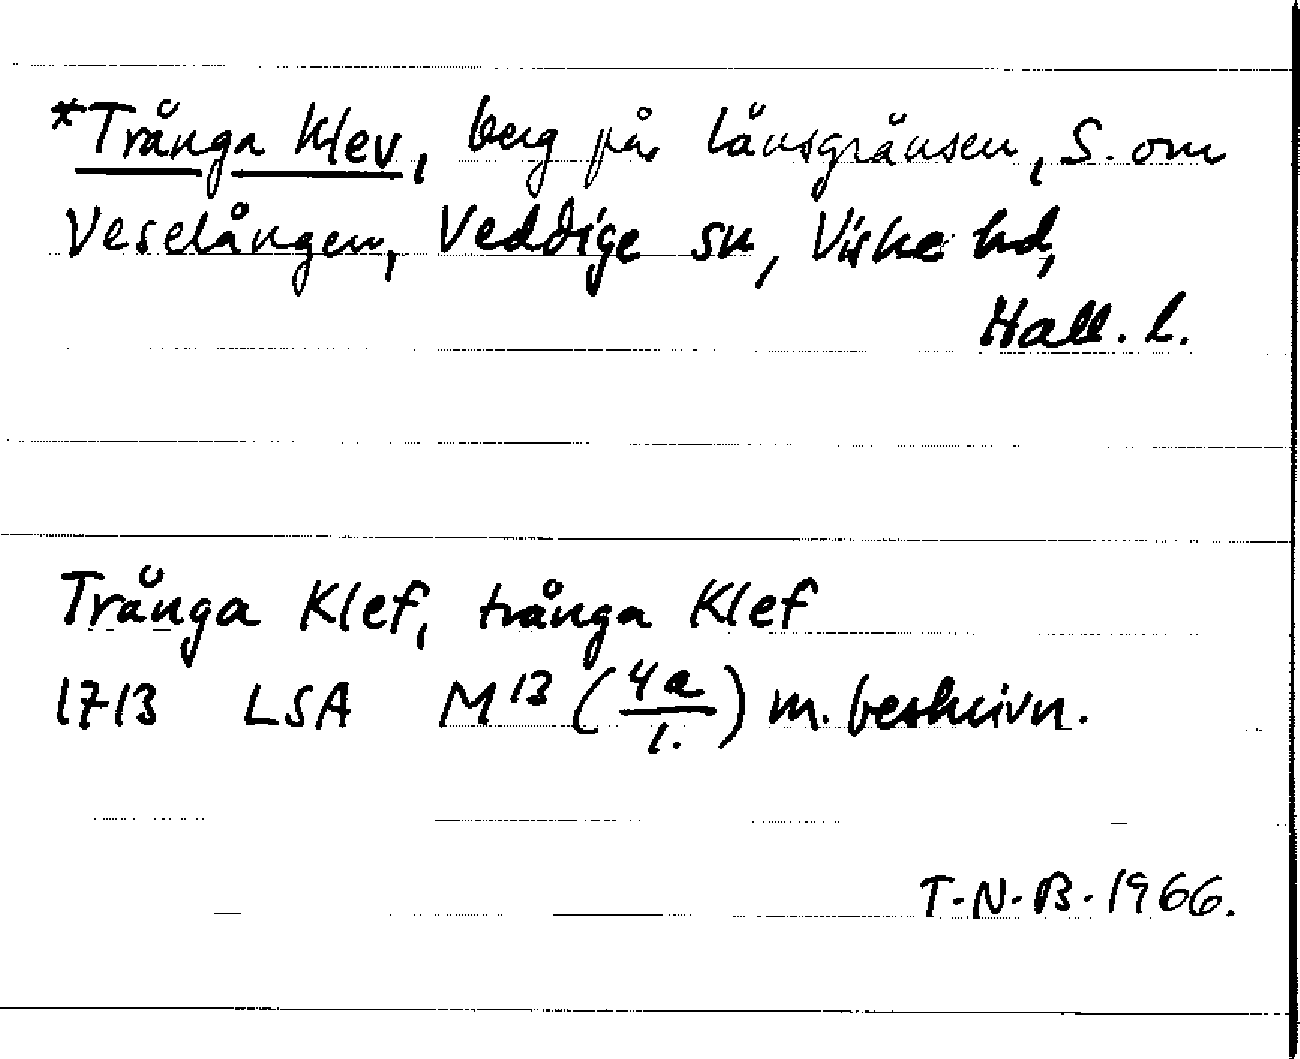 *Trånga Klev, berg på länsgränsen, S. om
Veselången, Veddige sn, Viske hd,
Hall. l.
Trånga Klef, trånga Klef
1713 LSA M 13 (4a/1.) m. beskrivn.
T.N.B. 1966.